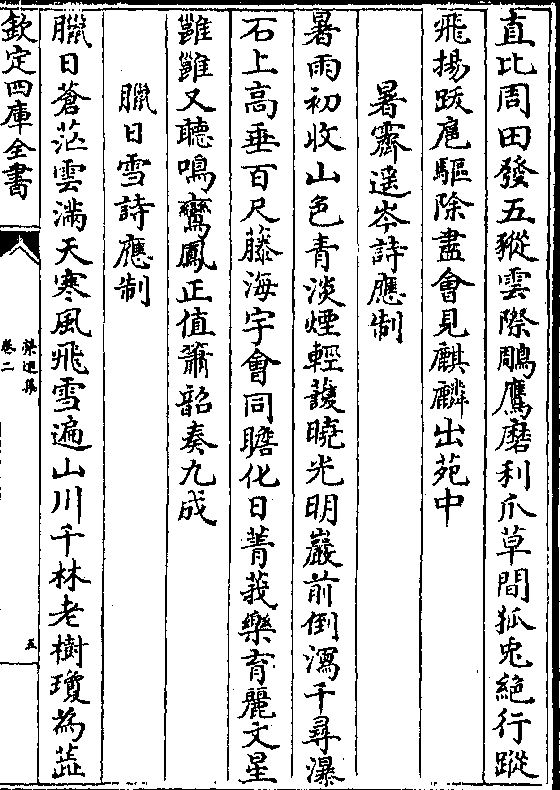 直比周田發五豵雲際鵰鷹磨利爪草間狐兎絶行蹤
飛揚跋扈驅除盡會見麒麟出苑中
暑霽遥岑詩應制
暑雨初收山色青淡煙輕護曉光明巖前倒瀉千尋瀑
石上高垂百尺藤海宇會同瞻化日菁莪樂育麗文星
雝雝又聽鳴鸞鳳正值簫韶奏九成
臘日雪詩應制
臘日蒼茫雲滿天寒風飛雪遍山川千林老樹瓊為蕋
欽定四庫全書
卷二
五